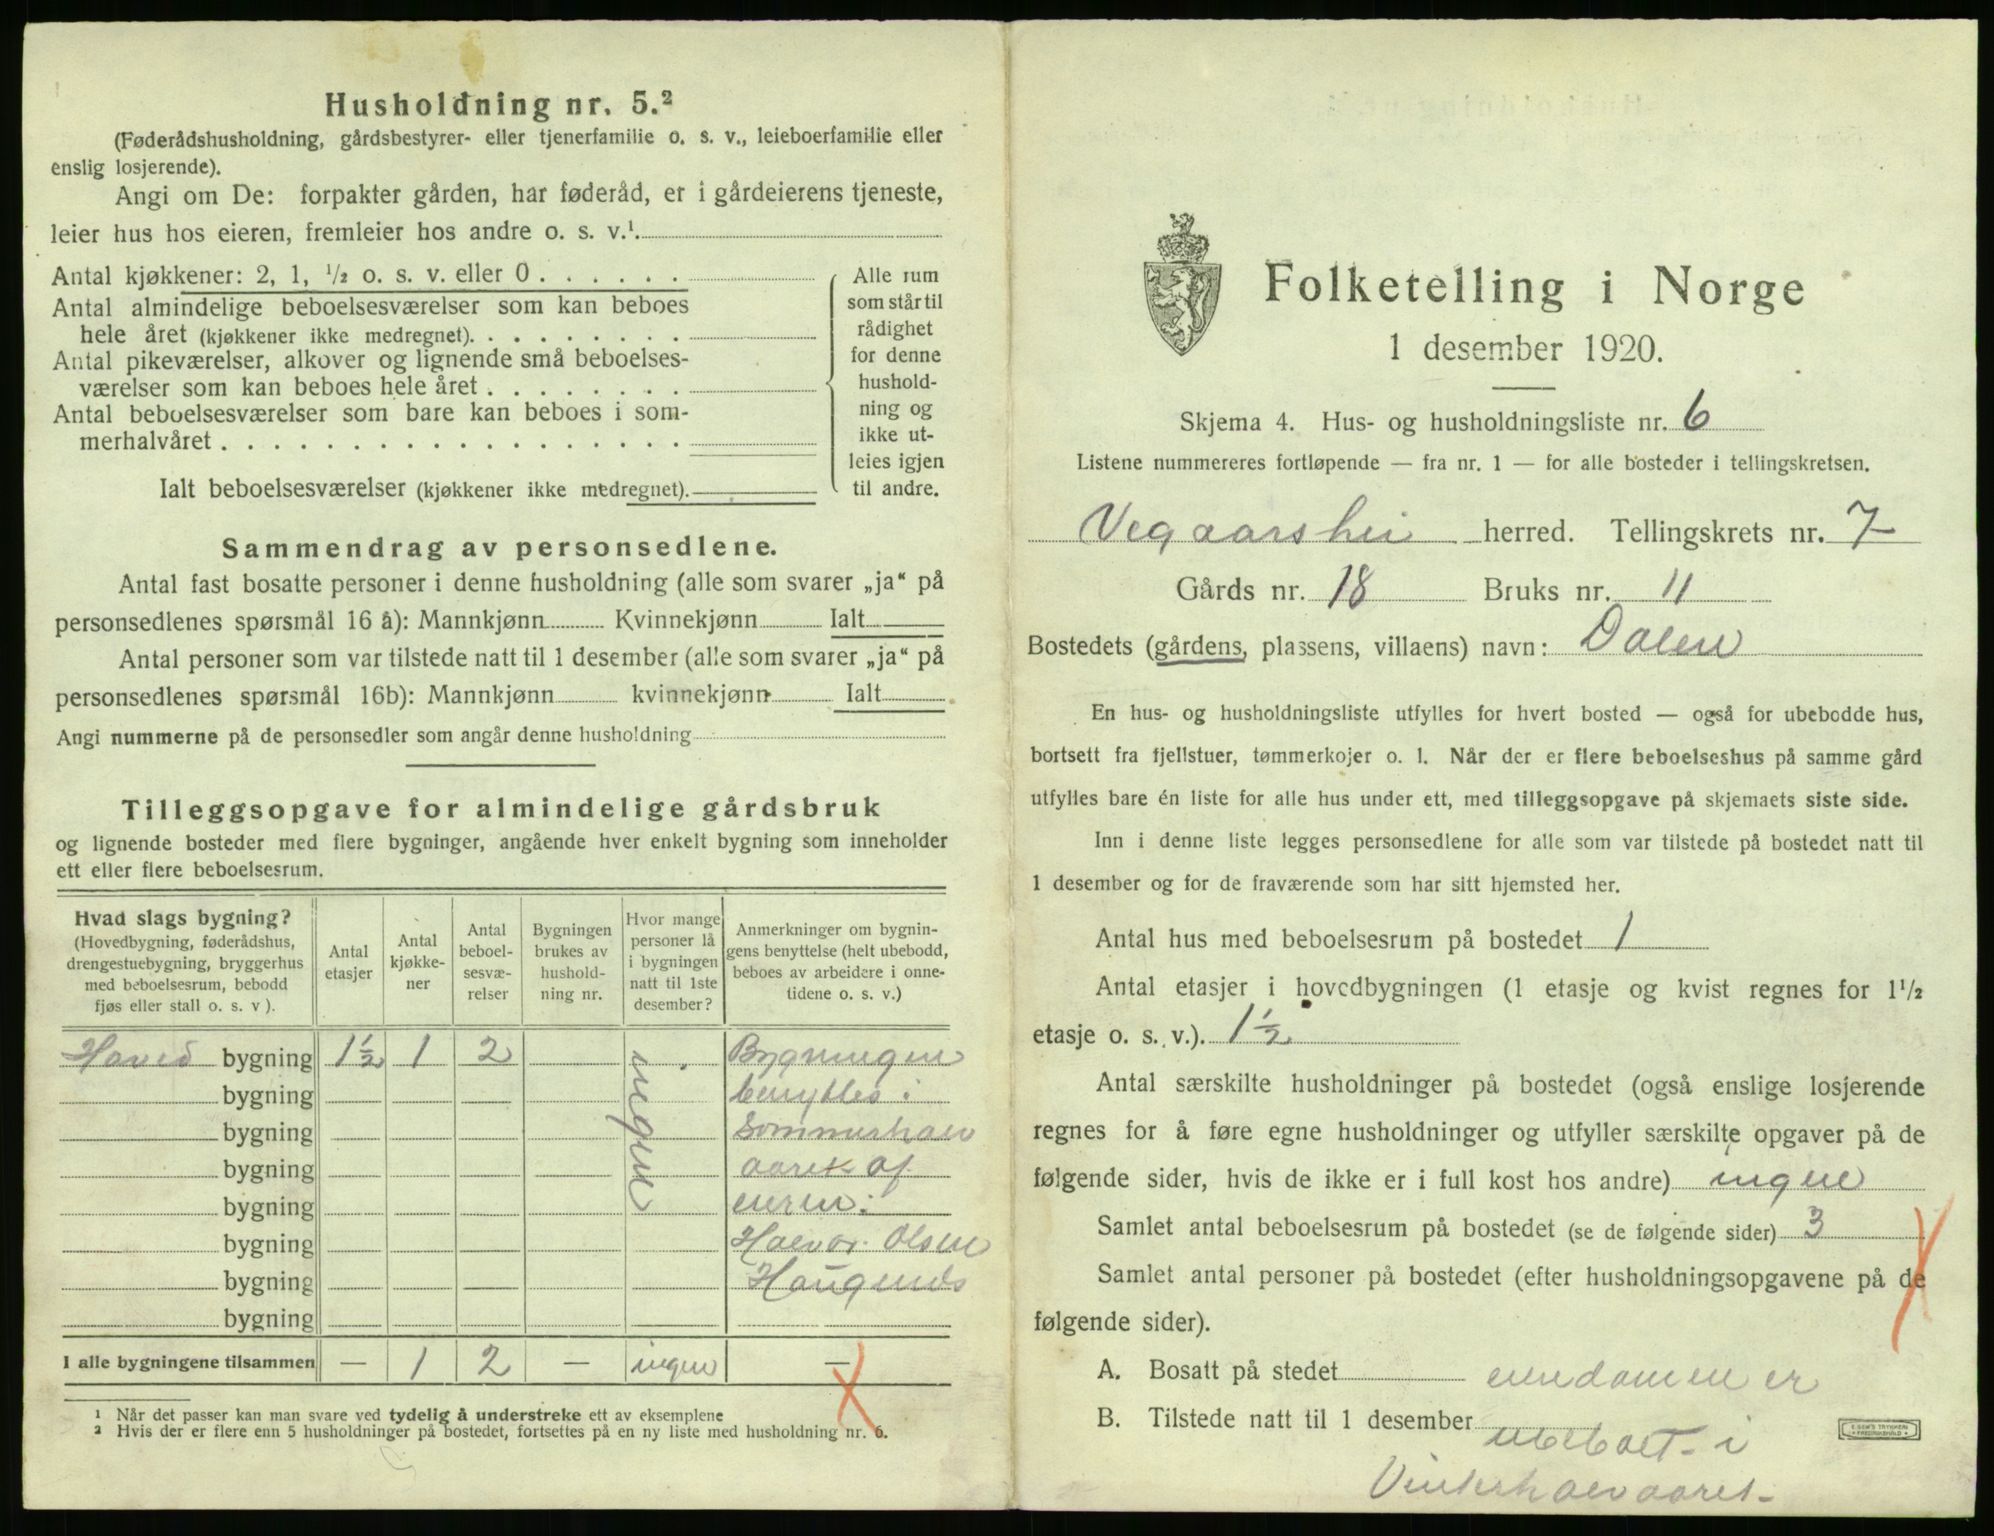 Husholdning nr. 5.²
(Føderådshusholdning, gårdsbestyrer- eller tjenerfamilie o. s. v., leieboerfamilie eller
enslig losjerende).
Angi om De: forpakter gården, har føderåd, er i gårdeierens tjeneste,
leier hus hos eieren, fremleier hos andre o. s. v.¹
Antal kjøkkener: 2, 1, ½ o. s. v. eller 0
Antal almindelige beboelsesværelser som kan beboes
hele året (kjøkkener ikke medregnet).
Antal pikeværelser, alkover og lignende små beboelses-
værelser som kan beboes hele året
Antal beboelsesværelser som bare kan beboes i som-
merhalvåret
Ialt beboelsesværelser (kjøkkener ikke medregnet).
Alle rum
som står til
rådighet
for denne
hushold-
ning og
ikke ut-
leies igjen
til andre.
Sammendrag av personsedlene.
Antal fast bosatte personer i denne husholdning (alle som svarer „ja“ på
personsedlenes spørsmål 16 a): Mannkjønn Kvinnekjønn Ialt
Antal personer som var tilstede natt til 1 desember (alle som svarer „ja“ på
personsedlenes spørsmål 16b): Mannkjønn kvinnekjønn Ialt
Angi nummerne på de personsedler som angår denne husholdning
Tilleggsopgave for almindelige gårdsbruk
og lignende bosteder med flere bygninger, angående hver enkelt bygning som inneholder
ett eller flere beboelsesrum.
Hvad slags bygning?
(Hovedbygning, føderådshus,
drengestuebygning, bryggerhus
med beboelsesrum, bebodd
fjøs eller stall o. s. v ).
Antal
etasjer
Antal
kjøkke-
ner
Antal
beboel-
sesvæ-
relser
Bygningen
brukes av
hushold-
ning nr.
Hvor mange
personer lå
i bygningen
natt til 1ste
desember?
Anmerkninger om bygnin-
gens benyttelse (helt ubebodd,
beboes av arbeidere i onne-
tidene o. s. v.)
Hoved bygning 1½ 1 2 ingen Bygningen
bygning benyttes i
bygning Sommerhalv
bygning aaret af
bygning eieren:
bygning Halvor Olsen
bygning Haugenes
bygning
I alle bygningene tilsammen — 1 2 — ingen —
¹ Når det passer kan man svare ved tydelig å understreke ett av eksemplene
² Hvis der er flere enn 5 husholdninger på bostedet, fortsettes på en ny liste med husholdning nr. 6.
Folketelling i Norge
1 desember 1920.
Skjema 4. Hus- og husholdningsliste nr. 6
Listene nummereres fortløpende — fra nr. 1 — for alle bosteder i tellingskretsen.
Vegaarshei herred. Tellingskrets nr. 7
Gårds nr. 18 Bruks nr. 11
Bostedets (gårdens, plassens, villaens) navn: Dalen
En hus- og husholdningsliste utfylles for hvert bosted — også for ubebodde hus,
bortsett fra fjellstuer, tømmerkojer o. l. Når der er flere beboelseshus på samme gård
utfylles bare én liste for alle hus under ett, med tilleggsopgave på skjemaets siste side.
Inn i denne liste legges personsedlene for alle som var tilstede på bostedet natt til
1 desember og for de fraværende som har sitt hjemsted her.
Antal hus med beboelsesrum på bostedet 1
Antal etasjer i hovedbygningen (1 etasje og kvist regnes for 1½
etasje o. s. v.). 1½
Antal særskilte husholdninger på bostedet (også enslige losjerende
regnes for å føre egne husholdninger og utfyller særskilte opgaver på de
følgende sider, hvis de ikke er i full kost hos andre) ingen
Samlet antal beboelsesrum på bostedet (se de følgende sider) 3
Samlet antal personer på bostedet (efter husholdningsopgavene på de
følgende sider).
A. Bosatt på stedet eiendommen er
B. Tilstede natt til 1 desember
ubeboet i
Vinterhalvaaret